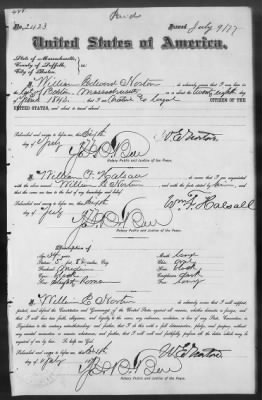 No. 2423 Issued July 9/77
United States of America.
State of Massachusetts,
County of Suffolk,
City of Boston.
I, William Edward Norton do solemnly swear that I was born in
City of Boston Massachusetts on or about the twenty eighth
day of 184 that I am a Native and Loyal CITIZEN OF THE
UNITED STATES, and about to travel
Subscribed and sworn to before me, this Sixth
day of July W. E. Norton
Notary Public and Justice of the Peace.
I, William F. Halsall do solemnly swear that I am acquainted
with the above named William E. Norton and with the facts stated by him, and
that the same are true to the best of my knowledge and belief.
Subscribed and sworn to before me, this Sixth
day of July Wm. F. Halsall
Notary Public and Justice of the Peace.
Description of
Age
Stature, 5 feet 8 inches, Eng.
Forehead Medium
Eyes
Nose
Mouth Large
Chin
Hair
Complexion Dark
Face Long
I, William E. Norton do solemnly swear that I will support,
protect, and defend the Constitution and Government of the United States against all enemies, whether domestic or foreign, and
that I will bear true faith, allegiance, and loyalty to the same, any ordinance, resolution, or law of any State, Convention, or
Legislature to the contrary notwithstanding; and further, that I do this with a full determination, pledge, and purpose, without
any mental reservation or evasion whatsoever; and further, that I will well and faithfully perform all the duties which may be
required of me by law. So help me God.
Subscribed and sworn to before me, this Sixth
day of July W. E. Norton
Notary Public and Justice of the Peace.